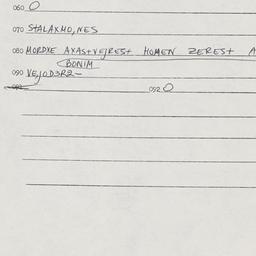 060 O
070 STALAXMO,NES
080 MORDXE AXAS+VEJRES+ HOMEN ZERES+ A
BONIM
090 VEJODSR2-
092 O